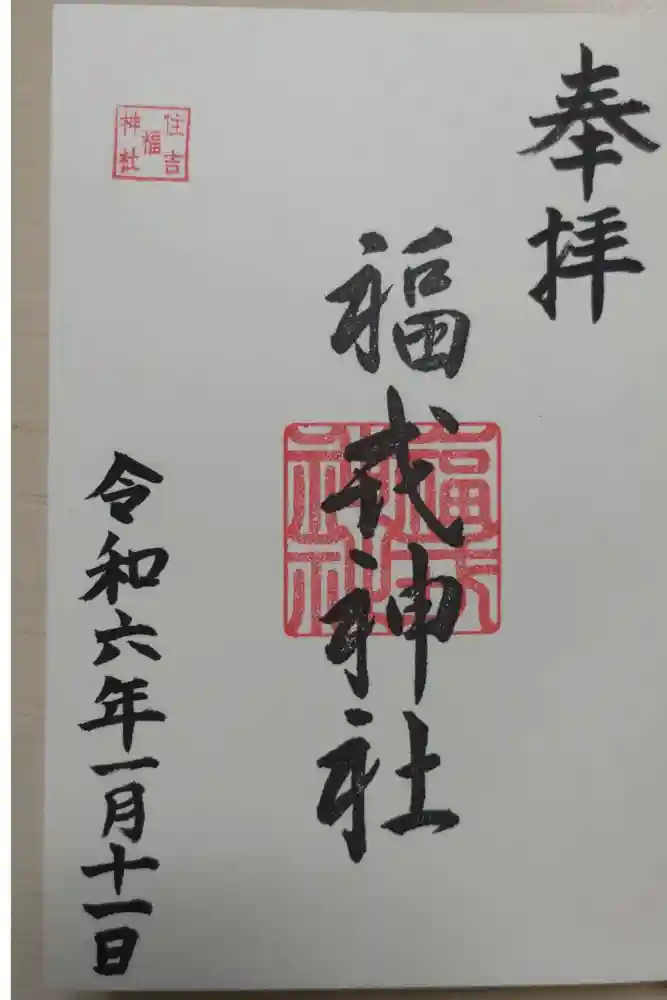 奉拝
福戎神社
福戎神社
住吉
福
神社
令和六年一月十一日